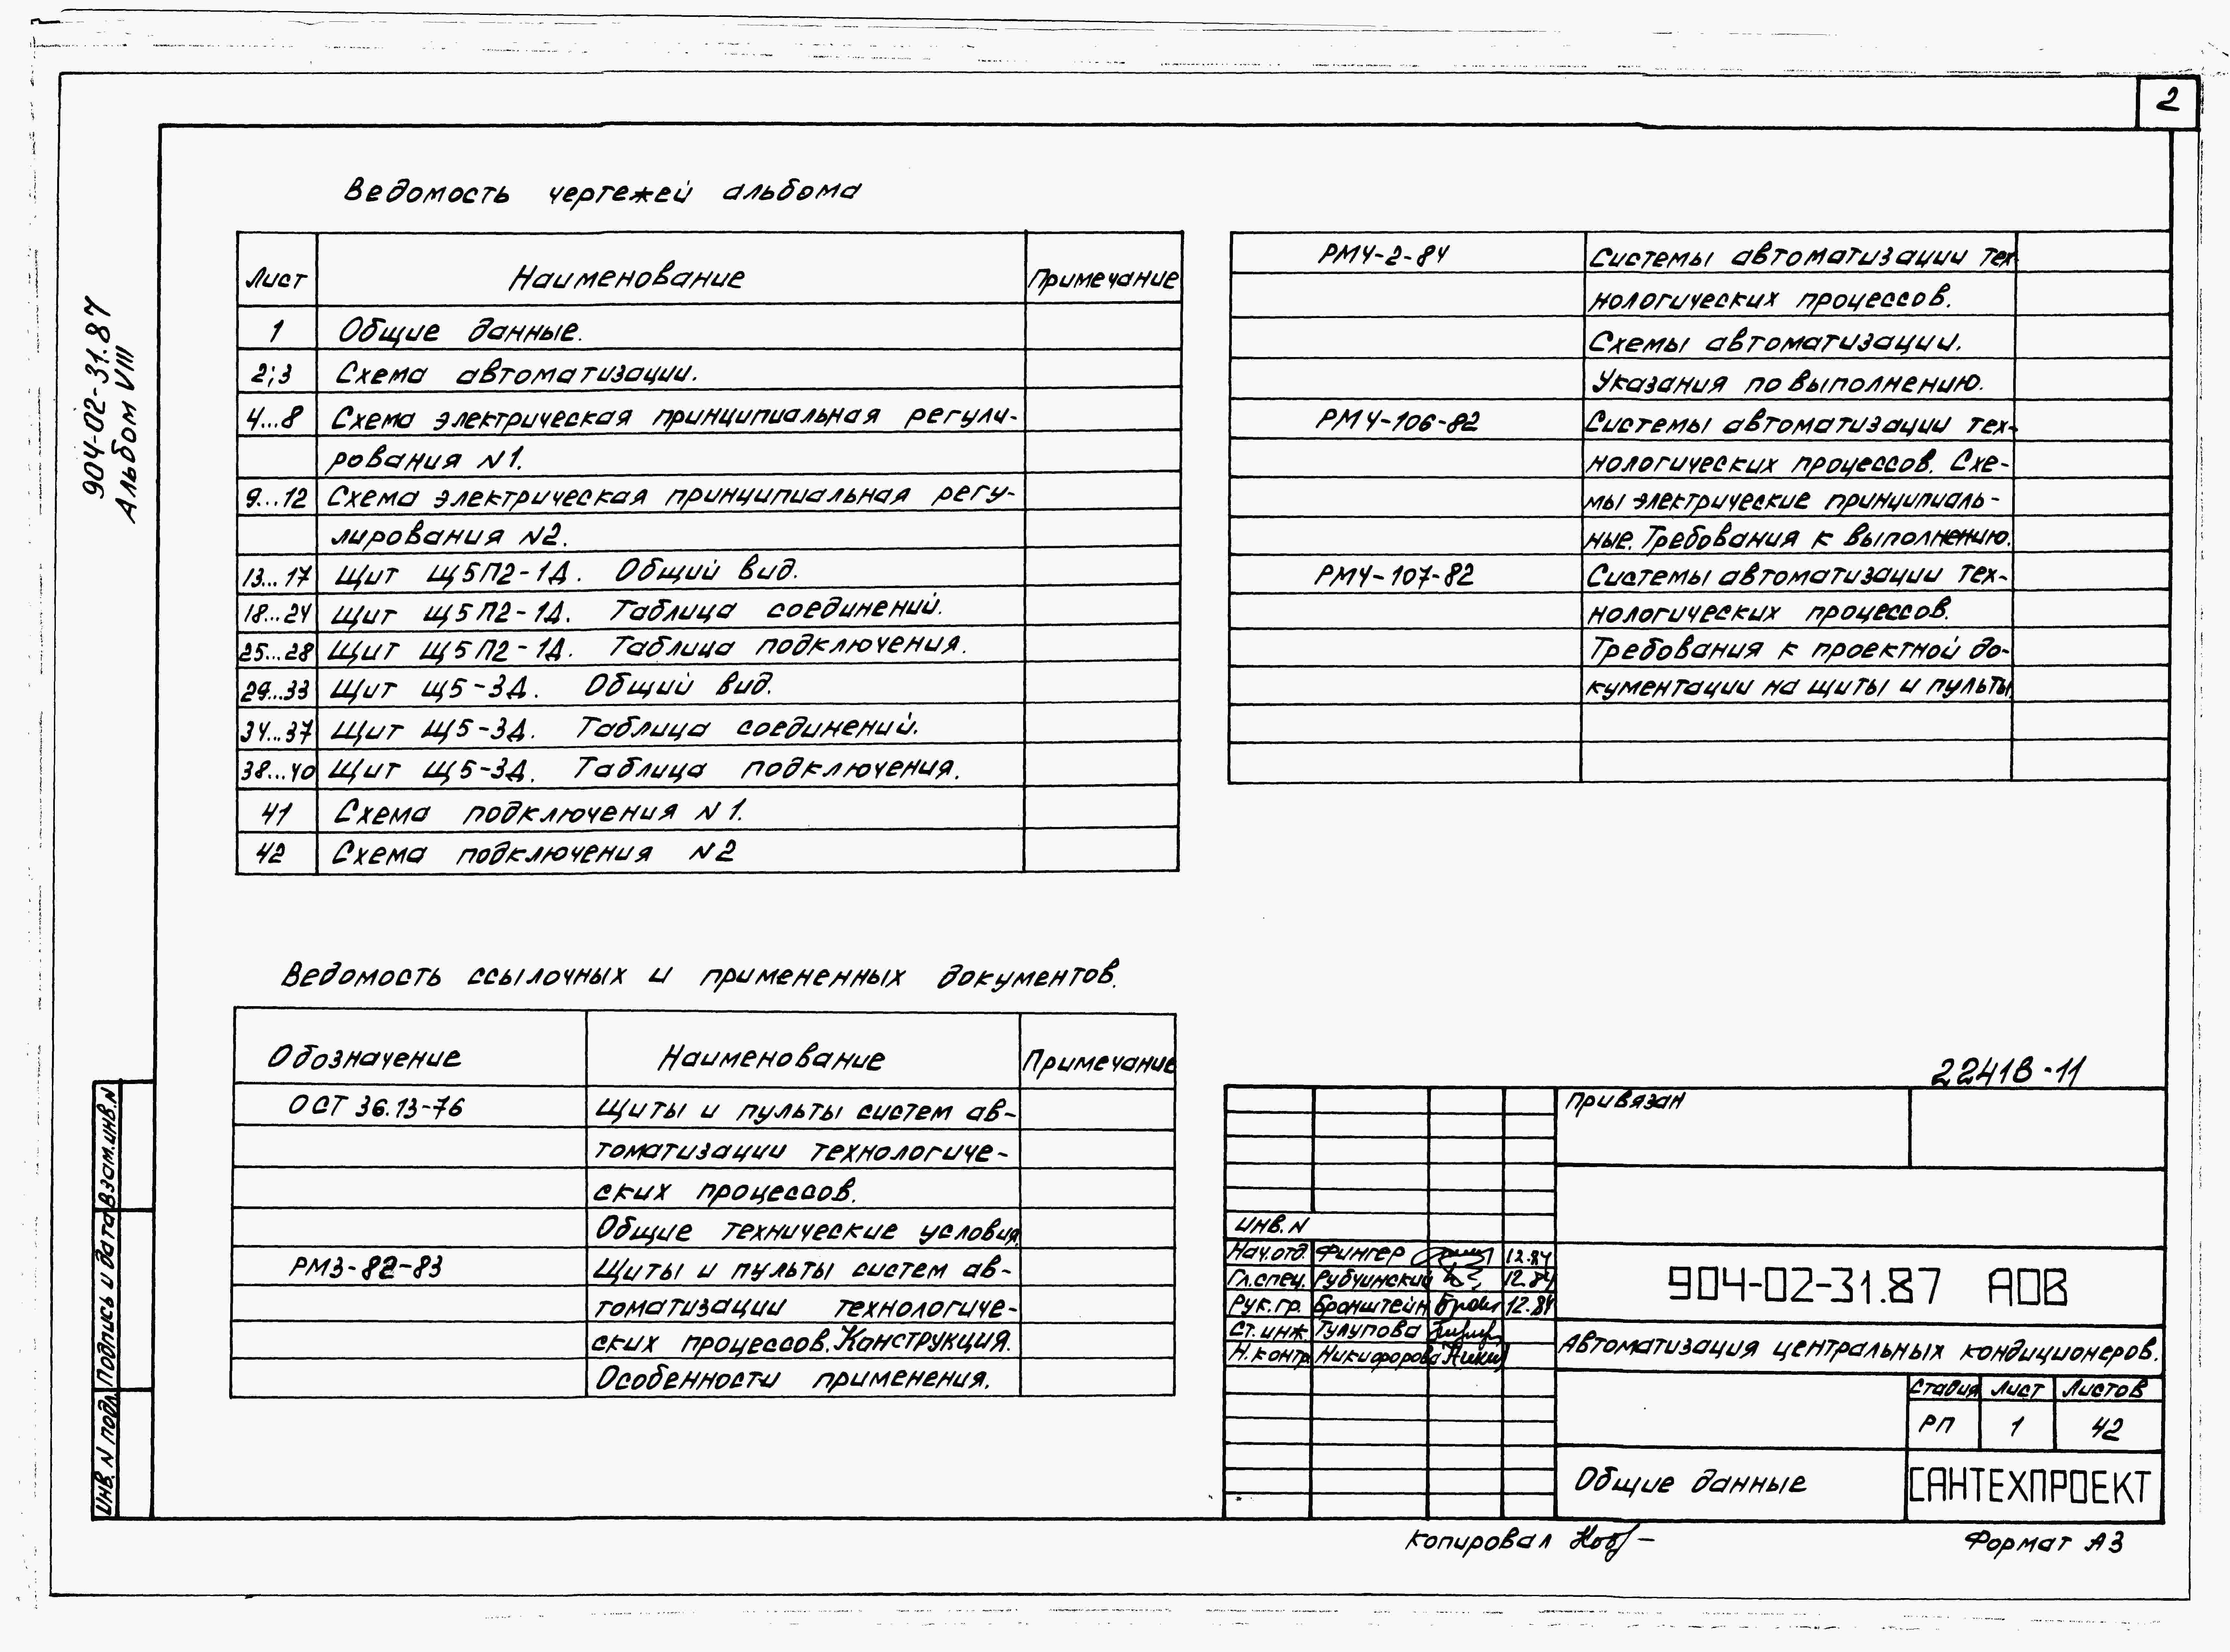 2
904-02-31.87
Альбом VIII
Ведомость чертежей альбома
Лист Наименование Примечание
1 Общие данные.
2;3 Схема автоматизации.
4...8 Схема электрическая принципиальная регули-
рования N1.
9...12 Схема электрическая принципиальная регу-
лирования N2.
13...17 Щит Щ5П2-1Д. Общий вид.
18...24 Щит Щ5П2-1Д. Таблица соединений.
25...28 Щит Щ5П2-1Д. Таблица подключения.
29...33 Щит Щ5-3Д. Общий вид.
34...37 Щит Щ5-3Д. Таблица соединений.
38...40 Щит Щ5-3Д. Таблица подключения.
41 Схема подключения N1.
42 Схема подключения N2
Ведомость ссылочных и примененных документов.
Обозначение Наименование Примечание
ОСТ 36.13-76 Щиты и пульты систем ав-
томатизации технологиче-
ских процессов.
Общие технические условия.
РМ3-82-83 Щиты и пульты систем ав-
томатизации технологиче-
ских процессов. Конструкция.
Особенности применения.
РМ4-2-84 Системы автоматизации тех-
нологических процессов.
Схемы автоматизации.
Указания по выполнению.
РМ4-106-82 Системы автоматизации тех-
нологических процессов. Схе-
мы электрические принципиаль-
ные. Требования к выполнению.
РМ4-107-82 Системы автоматизации тех-
нологических процессов.
Требования к проектной до-
кументации на щиты и пульты.
22418-11
Привязан
Инв. N
Нач.отд. Фингер 12.84
Гл.спец. Рубчинский 12.84
Рук.гр. Бронштейн 12.84
Ст.инж Тулупова
Н.контр. Никифорова
904-02-31.87 АОВ
Автоматизация центральных кондиционеров.
Стадия Лист Листов
РП 1 42
Общие данные
САНТЕХПРОЕКТ
Копировал
Формат А3
Взам.инв.N
Подпись и дата
Инв. N подл.